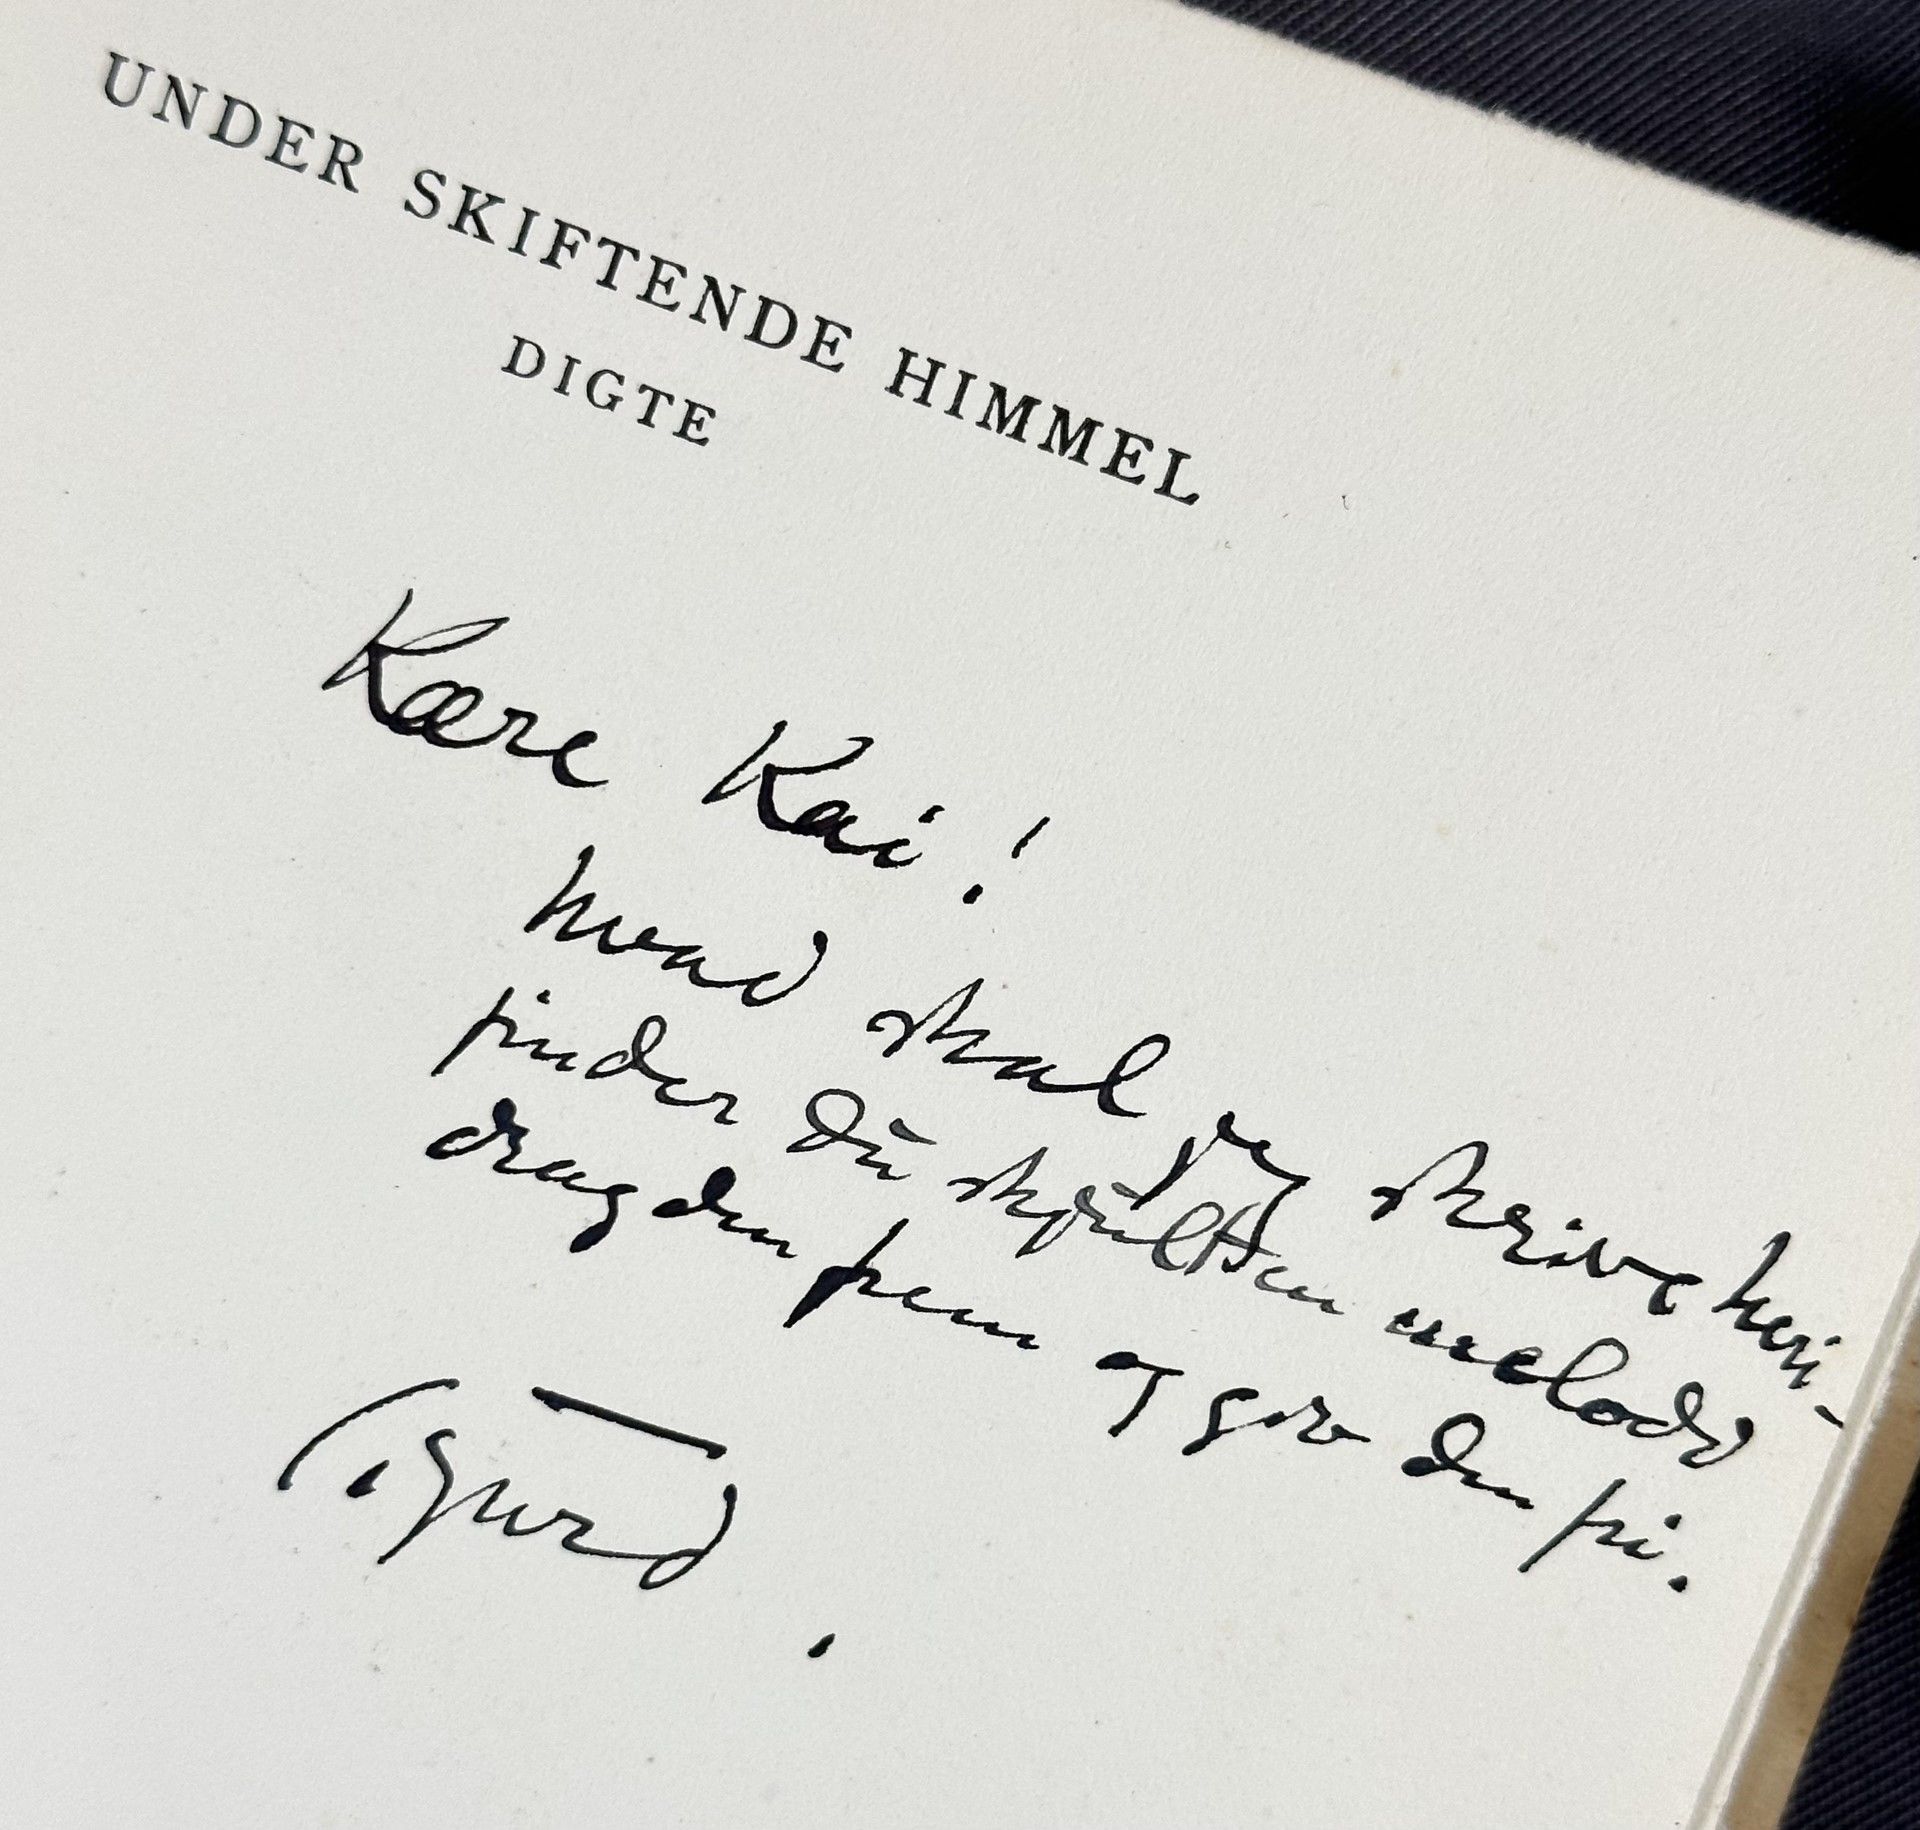 UNDER SKIFTENDE HIMMEL
DIGTE
Kære Kai!
hvad skal jeg skrive heri -
finder du skjulte en melodi
drag den frem og gør den fri.
Sigurd.